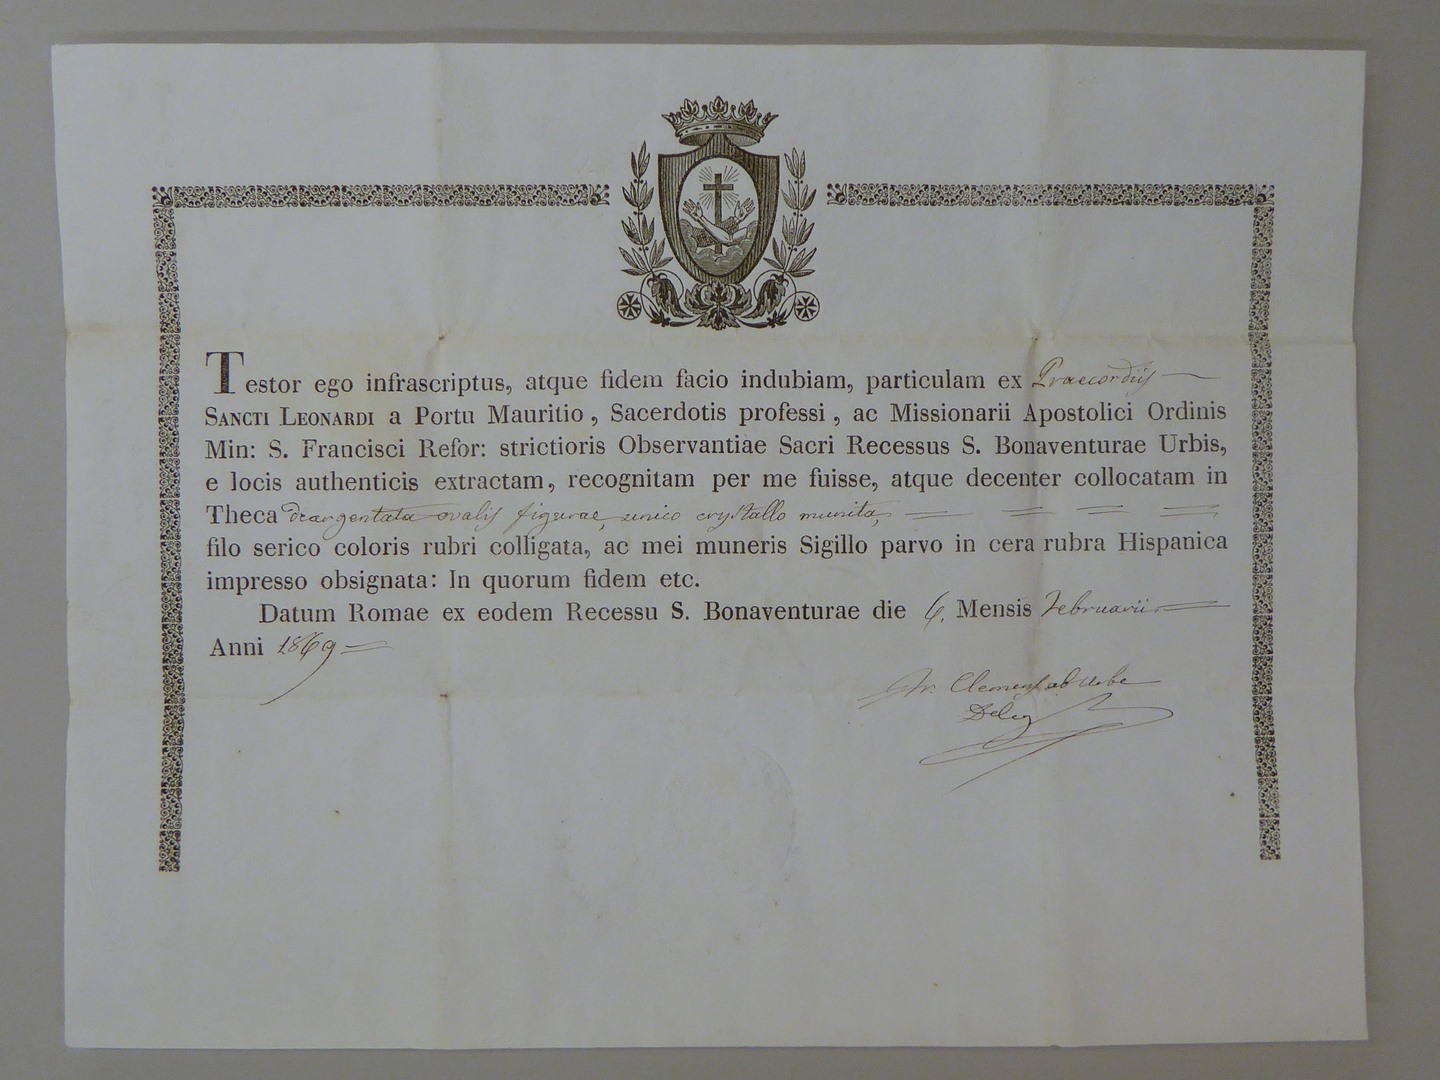 Testor ego infrascriptus, atque fidem facio indubiam, particulam ex Praecordiis
SANCTI LEONARDI a Portu Mauritio, Sacerdotis professi, ac Missionarii Apostolici Ordinis
Min: S. Francisci Refor: strictioris Observantiae Sacri Recessus S. Bonaventurae Urbis,
e locis authenticis extractam, recognitam per me fuisse, atque decenter collocatam in
Theca deargentata ovalis figurae, unico crystallo munita,
filo serico coloris rubri colligata, ac mei muneris Sigillo parvo in cera rubra Hispanica
impresso obsignata: In quorum fidem etc.
Datum Romae ex eodem Recessu S. Bonaventurae die 6. Mensis Februarii
Anni 1869
Fr. Clemens ab Urbe
Deleg